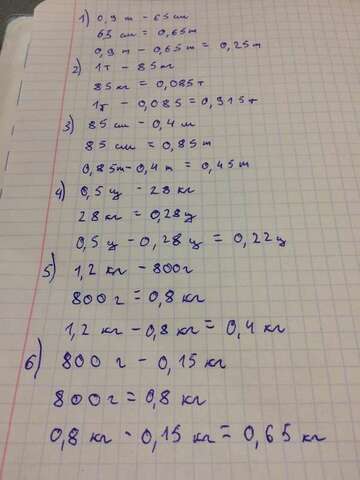 1) 0,9 m - 65 см
65 см = 0,65 m
0,9 m - 0,65 m = 0,25 m
2) 1 т - 85 кг
85 кг = 0,085 т
1 т - 0,085 = 0,915 т
3) 85 см - 0,4 м
85 см = 0,85 m
0,85 m - 0,4 m = 0,45 m
4) 0,5 ц - 28 кг
28 кг = 0,28 ц
0,5 ц - 0,28 ц = 0,22 ц
5) 1,2 кг - 800 г
800 г = 0,8 кг
1,2 кг - 0,8 кг = 0,4 кг
6) 800 г - 0,15 кг
800 г = 0,8 кг
0,8 кг - 0,15 кг = 0,65 кг